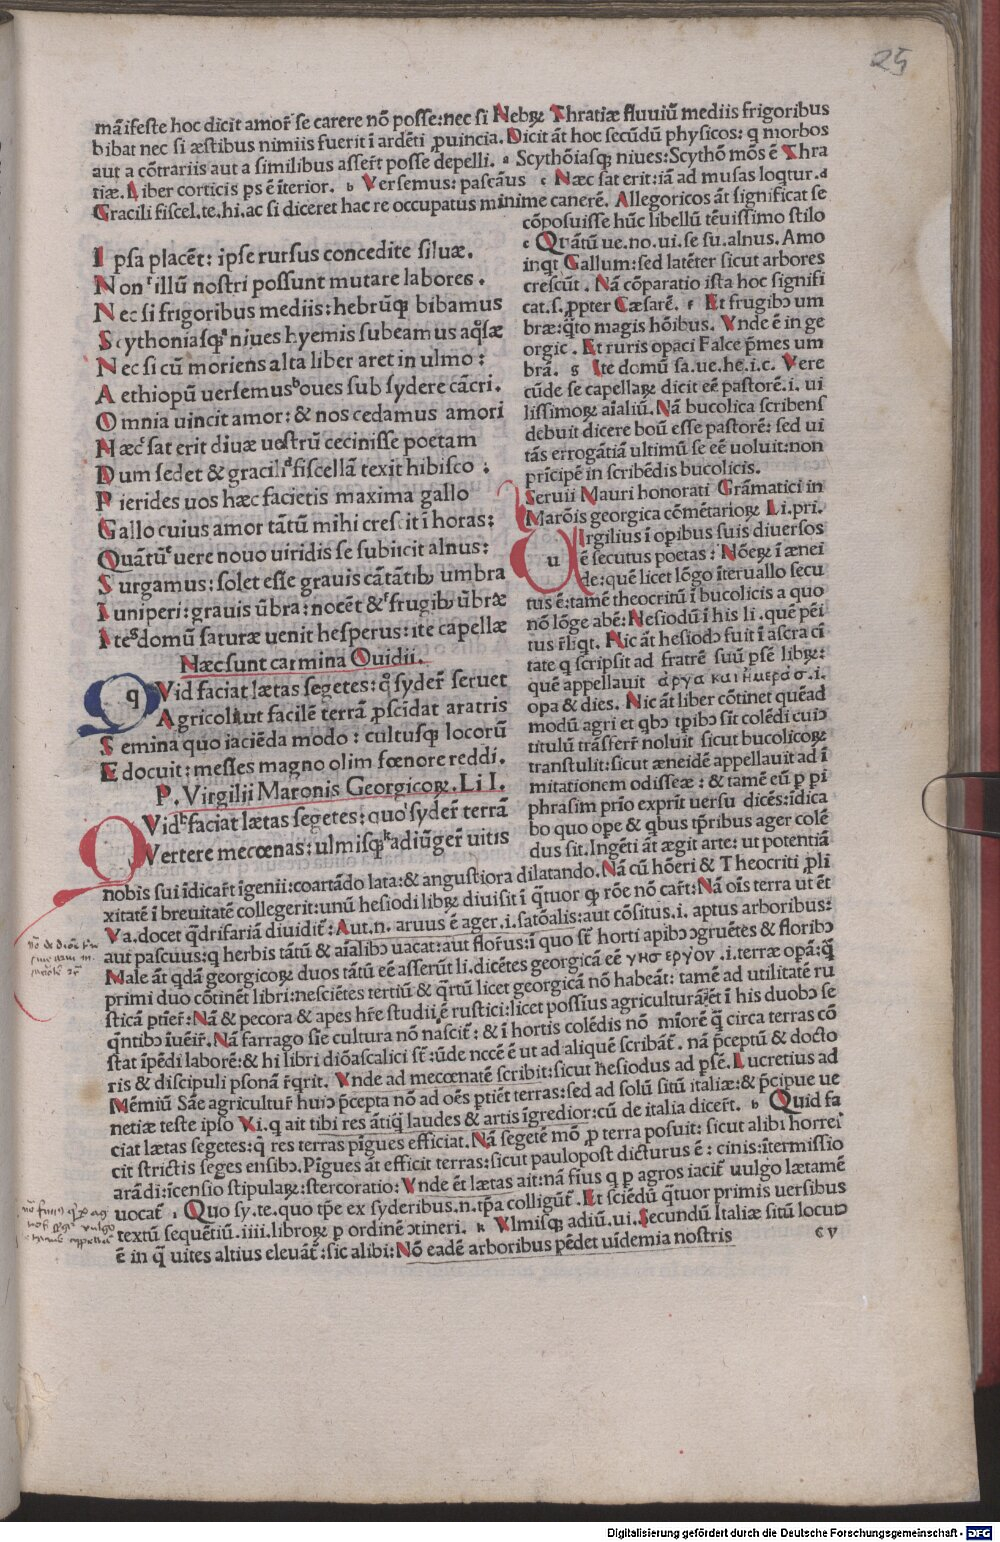 25
mãifeste hoc dicit amor̃ se carere nõ posse:nec si Nebꝝ Thratiæ fluuiũ mediis frigoribus
bibat nec si æstibus nimiis fuerit ĩ ardẽti ꝓuincia. Dicit ãt hoc secũdũ physicos: q morbos
aut a cõtrariis aut a similibus asser̃t posse depelli. a Scythõiasqꝫ niues:Scythõ mõs ẽ Thra
tiæ. Liber corticis ps ẽ ĩterior. b Versemus: pascãus c Næc sat erit:iã ad musas loqtur. d
Gracili fiscel.te.hi.ac si diceret hac re occupatus minime canerẽ. Allegoricos ãt significat se
Ipsa placẽt: ipse rursus concedite siluæ.
Non illũ nostri possunt mutare labores.
Nec si frigoribus mediis: hebrũqꝫ bibamus
Scythoniasqꝫ niues hyemis subeamus aq̃sæ
Nec si cũ moriens alta liber aret in ulmo:
Aethiopũ uersemus b oues sub sydere cãcri.
Omnia uincit amor: & nos cedamus amori
Næc c sat erit diuæ uestrũ cecinisse poetam
Dum sedet & gracili d fiscellã texit hibisco:
Pierides uos hæc facietis maxima gallo
Gallo cuius amor tãtũ mihi crescit ĩ horas:
Quãtũ e uere nouo uiridis se subiicit alnus:
Surgamus: solet esse grauis cãtãtibꝫ umbra
Iuniperi: grauis ũbra: nocẽt & f frugibꝫ ũbræ
Ite g domũ saturæ uenit hesperus: ite capellæ
Næc sunt carmina Ouidii.
QVid faciat lætas segetes: q̃ syder̃ seruet
Agricola ut facilẽ terrã ꝓscĩdat aratris
Semina quo iaciẽda modo: cultusqꝫ locorũ
Edocuit: messes magno olim fœnore reddi.
P. Virgilii Maronis Georgicoꝝ. Li I.
QVid h faciat lætas segetes: quo i syder̃ terrã
Vertere mecœnas: ulmisqꝫ k adiũger̃ uitis
cõposuisse hũc libellũ tẽuissimo stilo
e Quãtũ ue.no.ui.se su.alnus. Amo
inqt Gallum:sed latẽter sicut arbores
crescũt. Nã cõparatio ista hoc signifi
cat.s.ꝓpter Cæsarẽ. f Et frugibꝫ um
bræ:q̃to magis hõibus. Vnde ẽ in ge
orgic. Et ruris opaci Falce p̃mes um
brã. g Ite domũ sa.ue.he.i.c. Vere
cũde se capellaꝝ dicit eẽ pastorẽ.i. ui
lissimoꝝ aĩaliũ. Nã bucolica scribens
debuit dicere boũ esse pastorẽ: sed ui
tãs errogãtiã ultimũ se eẽ uoluit:non
prĩcipẽ in scribẽdis bucolicis.
Seruii Mauri honorati Grãmatici in
Marõis georgica cõmẽtarioꝝ Li.pri.
uIrgilius ĩ opibus suis diuersos
ẽ secutus poetas: Nõeꝝ ĩ ænei
de:quẽ licet lõgo ĩteruallo secu
tus ẽ:tamẽ theocritũ ĩ bucolicis a quo
nõ lõge abẽ: Nesiodũ ĩ his li.quẽ pẽi
tus r̃liqt. Nic ãt hesiodꝫ fuit ĩ ascra ci
tate q scripsit ad fratrẽ suũ psẽ libꝝ:
quẽ appellauit αργα και ημερασ.i.
opa & dies. Nic ãt liber cõtinet quẽad
modũ agri et qbꝫ tpibꝫ sit colẽdi cuiꝫ
titulũ trãsferr̃ noluit sicut bucolicoꝝ
transtulit:sicut æneidẽ appellauit ad ĩ
mitationem odisseæ: & tamẽ eũ ꝑ pi
phrasim prĩo exprit uersu dicẽs:ĩdica
bo quo ope & qbus tp̃ribus ager colẽ
dus sit. Ingẽti ãt ægit arte: ut potentiã
nobis sui ĩdicar̃t ĩgenii:coartãdo lata:& angustiora dilatando. Nã cũ hõeri & Theocriti ꝓli
xitatẽ ĩ breuitatẽ collegerit:unũ hesiodi libꝝ diuisit ĩ q̃tuor qꝫ rõe nõ car̃t:Nã oĩs terra ut ẽt
Va.docet q̃drifariã diuidit̃: Aut.n. aruus ẽ ager.i.satõalis:aut cõsitus.i. aptus arboribus:
aut pascuus:q herbis tãtũ & aĩalibꝫ uacat:aut flor̃us:ĩ quo st̃ horti apibꝫ ꝯgruẽtes & floribꝫ
Male ãt qdã georgicoꝝ duos tãtũ eẽ asserũt li.dicẽtes georgicã eẽ γησ εργον.i.terræ opã:q̃
primi duo cõtinẽt libri:nesciẽtes tertiũ & q̃rtũ licet georgicã nõ habeãt: tamẽ ad utilitatẽ ru
sticã ptier̃:Nã & pecora & apes hr̃e studii ẽ rustici:licet possius agriculturã:ẽt ĩ his duobꝫ se
q̃ntibꝫ ĩuẽir̃. Nã farrago siẽ cultura nõ nascit̃: & ĩ hortis colẽdis nõ mĩorẽ q̃ circa terras cõ
stat ĩpẽdi laborẽ:& hi libri diõascalici st̃:ũde nccẽ ẽ ut ad aliquẽ scribãt̃. nã p̃ceptũ & docto
ris & discipuli psonã r̃qrit. Vnde ad mecœnatẽ scribit:sicut hesiodus ad psẽ. Lucretius ad
Mẽmiũ Sãe agricultur̃ huiꝫ p̃cepta nõ ad oẽs ptiẽt terras:sed ad solũ sitũ italiæ:& p̃cipue ue
netiæ teste ipso Vi.q ait tibi res ãtiq̃ laudes & artis ĩgredior:cũ de italia dicer̃t. h Quid fa
ciat lætas segetes:q̃ res terras pĩgues efficiat. Nã segetẽ mõ ꝓ terra posuit: sicut alibi horrei
cit strictis seges ensibꝫ. Pĩgues ãt efficit terras:sicut paulopost dicturus ẽ: cinis:ĩtermissio
arãdi:ĩcensio stipulaꝝ:stercoratio: Vnde ẽt lætas ait:nã fius q p agros iacit̃ uulgo lætamẽ
uocat̃ i Quo sy.te.quo tp̃e ex syderibus.n.tp̃a colligũt̃. Et sciẽdũ q̃tuor primis uersibus
textũ sequẽtiũ.iiii.libroꝝ p ordinẽ ꝯtineri. k Vlmisqꝫ adiũ.ui.Secundũ Italiæ sitũ locutꝫ
ẽ in q̃ uites altius eleuãt̃:sic alibi: Nõ eadẽ arboribus pẽdet uĩdemia nostris
c v
Digitalisierung gefördert durch die Deutsche Forschungsgemeinschaft - DFG